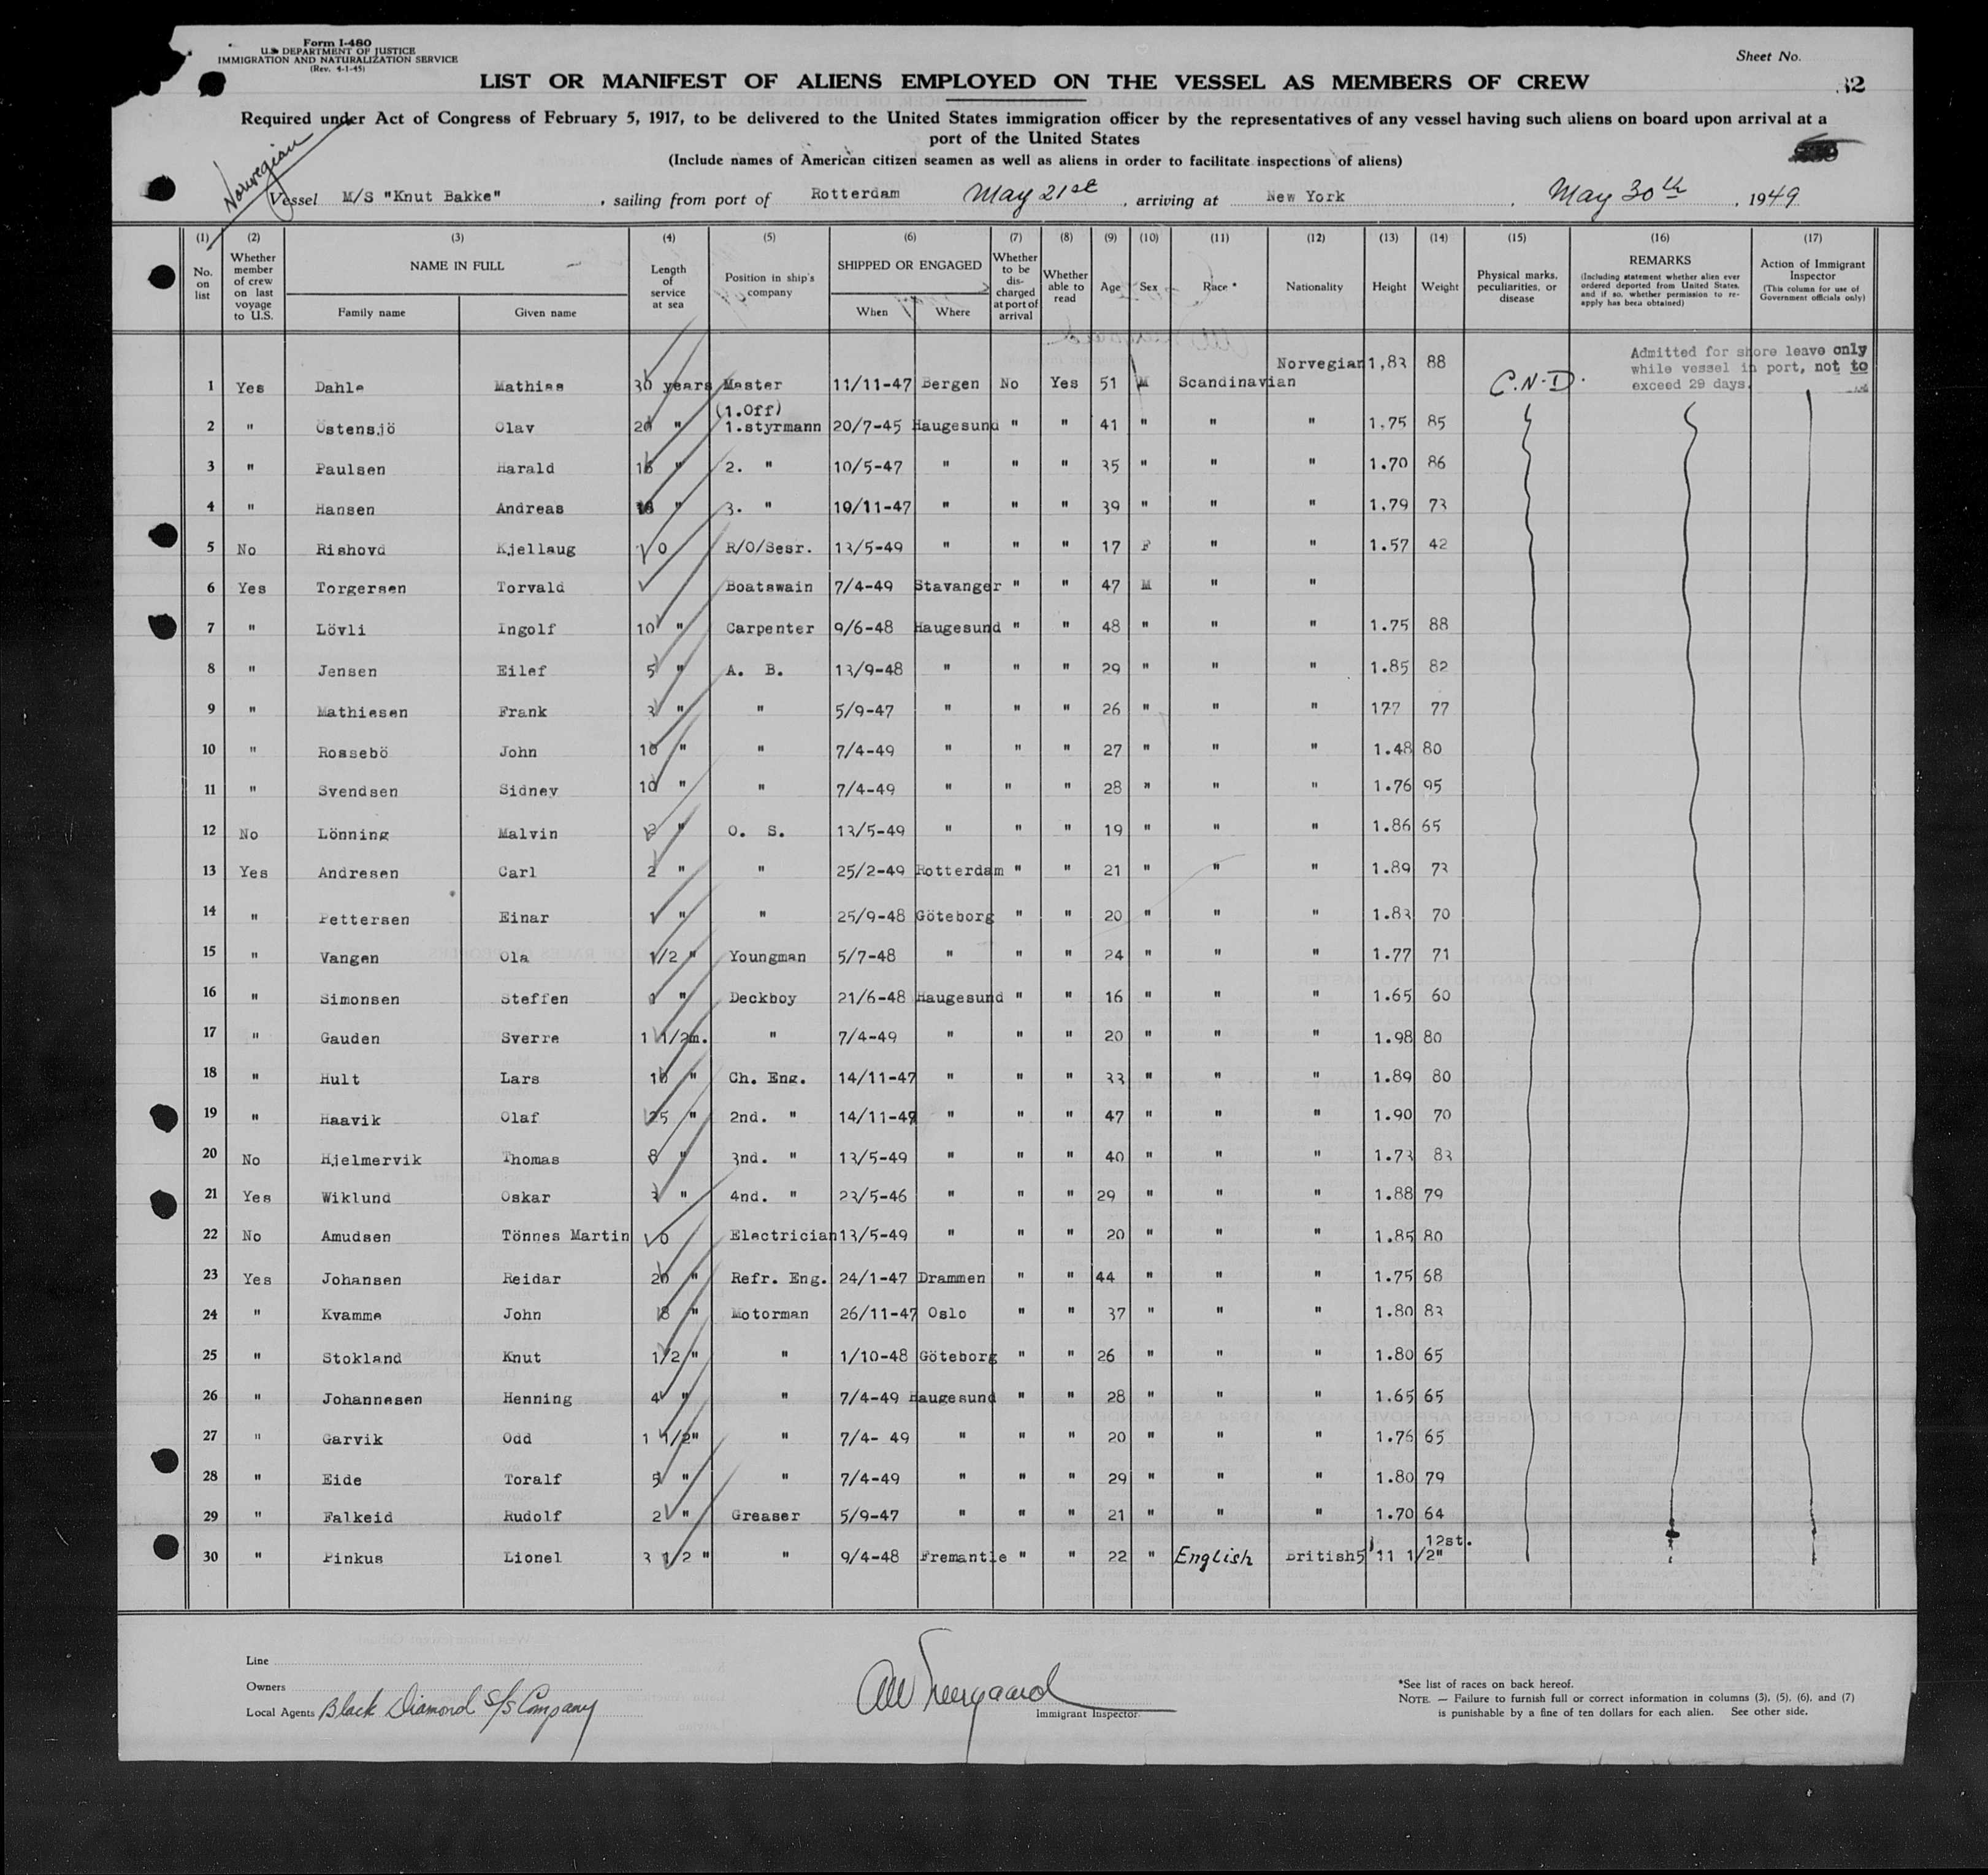 Form I-480
U.S. DEPARTMENT OF JUSTICE
IMMIGRATION AND NATURALIZATION SERVICE
(Rev. 4-1-45)
Sheet No.
32
LIST OR MANIFEST OF ALIENS EMPLOYED ON THE VESSEL AS MEMBERS OF CREW
Required under Act of Congress of February 5, 1917, to be delivered to the United States immigration officer by the representatives of any vessel having such aliens on board upon arrival at a
port of the United States
(Include names of American citizen seamen as well as aliens in order to facilitate inspections of aliens)
Norwegian
Vessel M/S "Knut Bakke", sailing from port of Rotterdam May 21st, arriving at New York, May 30th, 1949
(1) (2) (3) (4) (5) (6) (7) (8) (9) (10) (11) (12) (13) (14) (15) (16) (17)
No. on list
Whether member of crew on last voyage to U.S.
NAME IN FULL
Family name Given name
Length of service at sea
Position in ship's company
SHIPPED OR ENGAGED
When Where
Whether to be discharged at port of arrival
Whether able to read
Age Sex Race * Nationality Height Weight
Physical marks, peculiarities, or disease
REMARKS
(Including statement whether alien ever ordered deported from United States, and if so, whether permission to reapply has been obtained)
Action of Immigrant Inspector
(This column for use of Government officials only)
Admitted for shore leave only
while vessel in port, not to
exceed 29 days.
1 Yes Dahle Mathias 30 years Master 11/11-47 Bergen No Yes 51 M Scandinavian Norwegian 1,83 88 C.N.D.
(1.Off)
2 " Östensjö Olav 20 " 1.styrmann 20/7-45 Haugesund " " 41 " " " 1.75 85
3 " Paulsen Harald " 2. " 10/5-47 " " " 35 " " " 1.70 86
4 " Hansen Andreas " 3. " 10/11-47 " " " 39 " " " 1.79 73
5 No Rishovd Kjellaug 0 R/O/Sesr. 13/5-49 " " " 17 F " " 1.57 42
6 Yes Torgersen Torvald Boatswain 7/4-49 Stavanger " " 47 M " "
7 " Lövli Ingolf 10 " Carpenter 9/6-48 Haugesund " " 48 " " " 1.75 88
8 " Jensen Eilef 5 " A. B. 13/9-48 " " " 29 " " " 1.85 82
9 " Mathiesen Frank 3 " " 5/9-47 " " " 26 " " " 177 77
10 " Rossebö John 10 " " 7/4-49 " " " 27 " " " 1.48 80
11 " Svendsen Sidney 10 " " 7/4-49 " " " 28 " " " 1.76 95
12 No Lönning Malvin " O. S. 13/5-49 " " " 19 " " " 1.86 65
13 Yes Andresen Carl 2 " " 25/2-49 Rotterdam " " 21 " " " 1.89 73
14 " Pettersen Einar 1 " " 25/9-48 Göteborg " " 20 " " " 1.83 70
15 " Vangen Ola 1/2 " Youngman 5/7-48 " " " 24 " " " 1.77 71
16 " Simonsen Steffen 1 " Deckboy 21/6-48 Haugesund " " 16 " " " 1.65 60
17 " Gauden Sverre 1 1/2m. " 7/4-49 " " " 20 " " " 1.98 80
18 " Hult Lars 10 " Ch. Eng. 14/11-47 " " " 33 " " " 1.89 80
19 " Haavik Olaf 25 " 2nd. " 14/11-47 " " " 47 " " " 1.90 70
20 No Hjelmervik Thomas 8 " 3nd. " 13/5-49 " " " 40 " " " 1.73 83
21 Yes Wiklund Oskar 3 " 4nd. " 23/5-46 " " " 29 " " " 1.88 79
22 No Amudsen Tönnes Martin 0 Electrician 13/5-49 " " " 20 " " " 1.85 80
23 Yes Johansen Reidar 20 " Refr. Eng. 24/1-47 Drammen " " 44 " " " 1.75 68
24 " Kvamme John 8 " Motorman 26/11-47 Oslo " " 37 " " " 1.80 83
25 " Stokland Knut 1/2 " " 1/10-48 Göteborg " " 26 " " " 1.80 65
26 " Johannesen Henning 4 " " 7/4-49 Haugesund " " 28 " " " 1.65 65
27 " Garvik Odd 1 1/2" " 7/4- 49 " " " 20 " " " 1.76 65
28 " Eide Toralf 5 " " 7/4-49 " " " 29 " " " 1.80 79
29 " Falkeid Rudolf 2 " Greaser 5/9-47 " " " 21 " " " 1.70 64
30 " Pinkus Lionel 3 1/2 " " 9/4-48 Fremantle " " 22 " English British 5' 11 1/2" 12st.
Line
Owners
Local Agents Black Diamond S/S Company
Immigrant Inspector.
*See list of races on back hereof.
NOTE. — Failure to furnish full or correct information in columns (3), (5), (6), and (7)
is punishable by a fine of ten dollars for each alien. See other side.